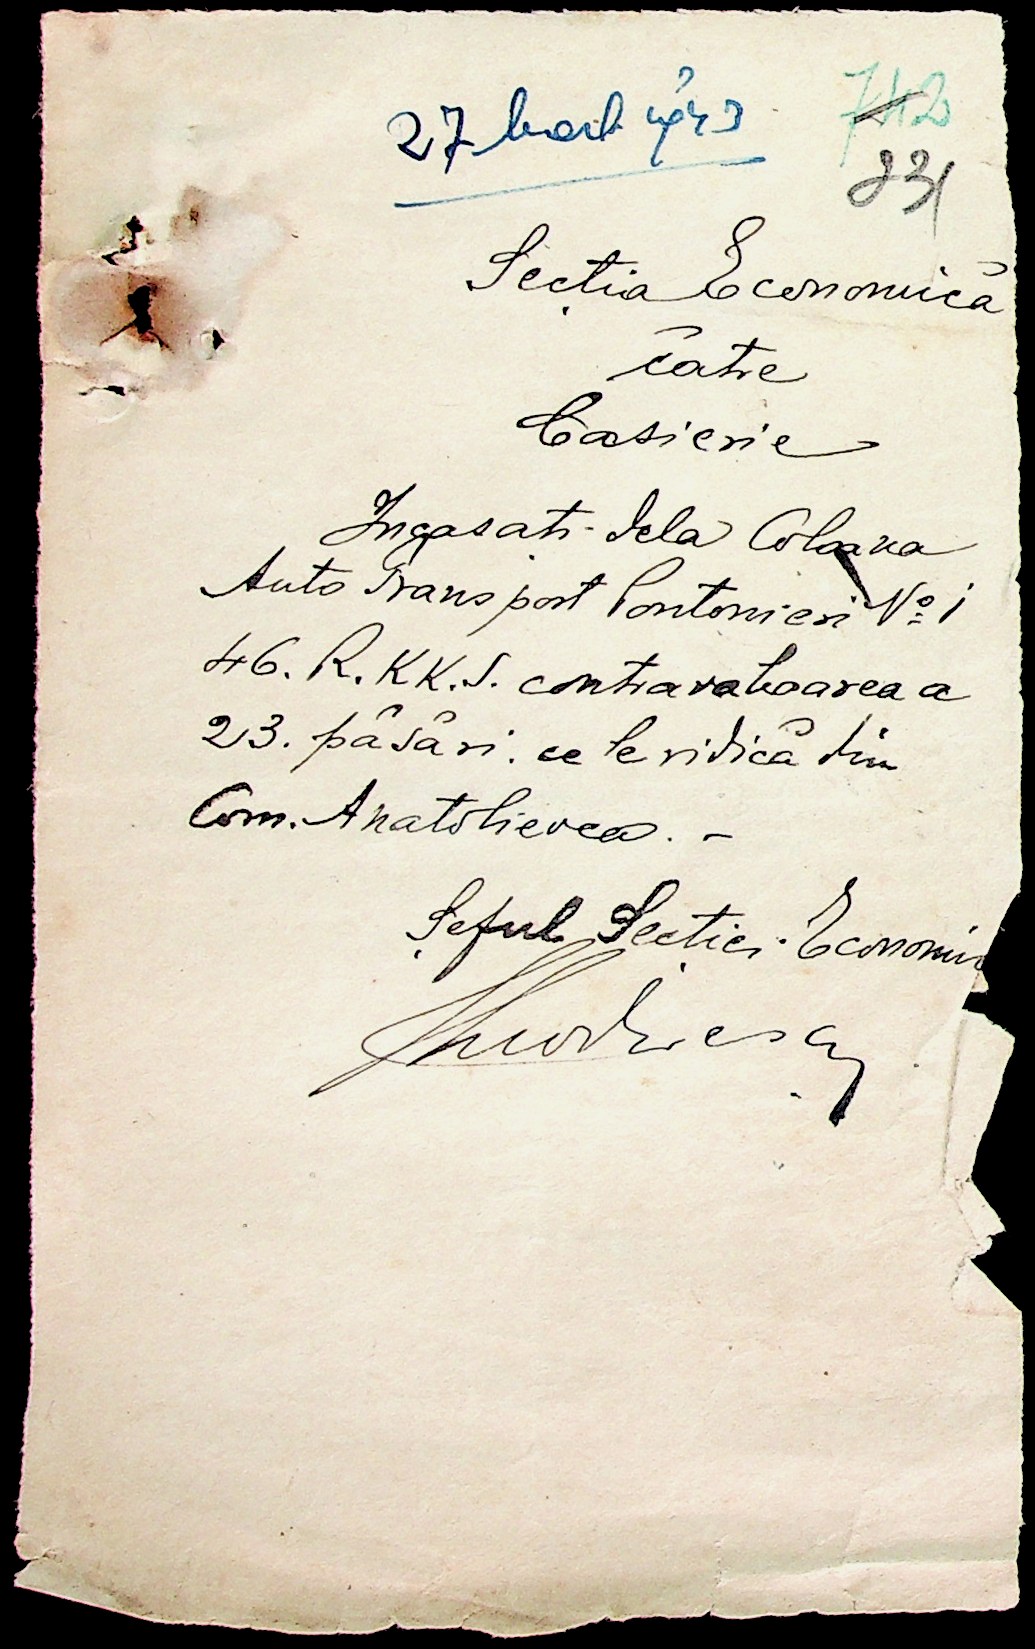 27 Mart. 943
742
231
Secția Economică
către
Casierie
Incasati dela Coloana
Auto Transport Pontonieri No 1
46. R.K.K.S. contravaloarea a
23. păsări. ce le ridică din
Com. Anatolievca. -
Șeful Secției Economic